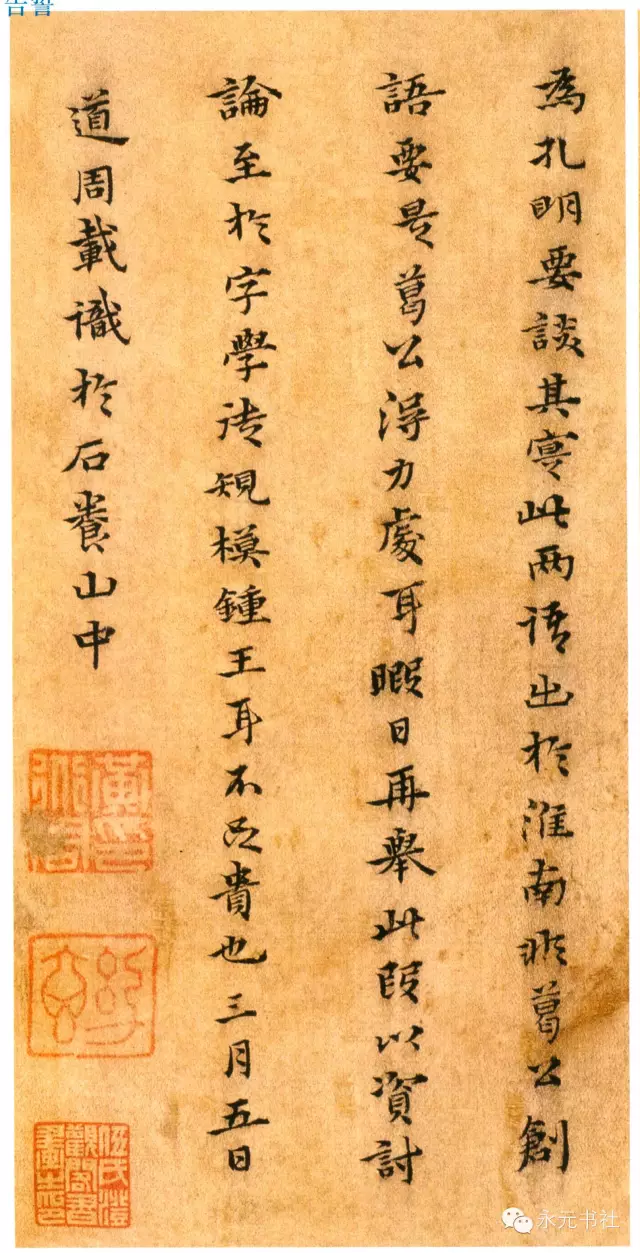 告誓
為孔明要談其實此兩語出於淮南非葛公創
語要是葛公得力處耳暇日再舉此段以資討
論至於字學法規模鍾王耳不足貴也三月五日
道周載識於石養山中
永元书社